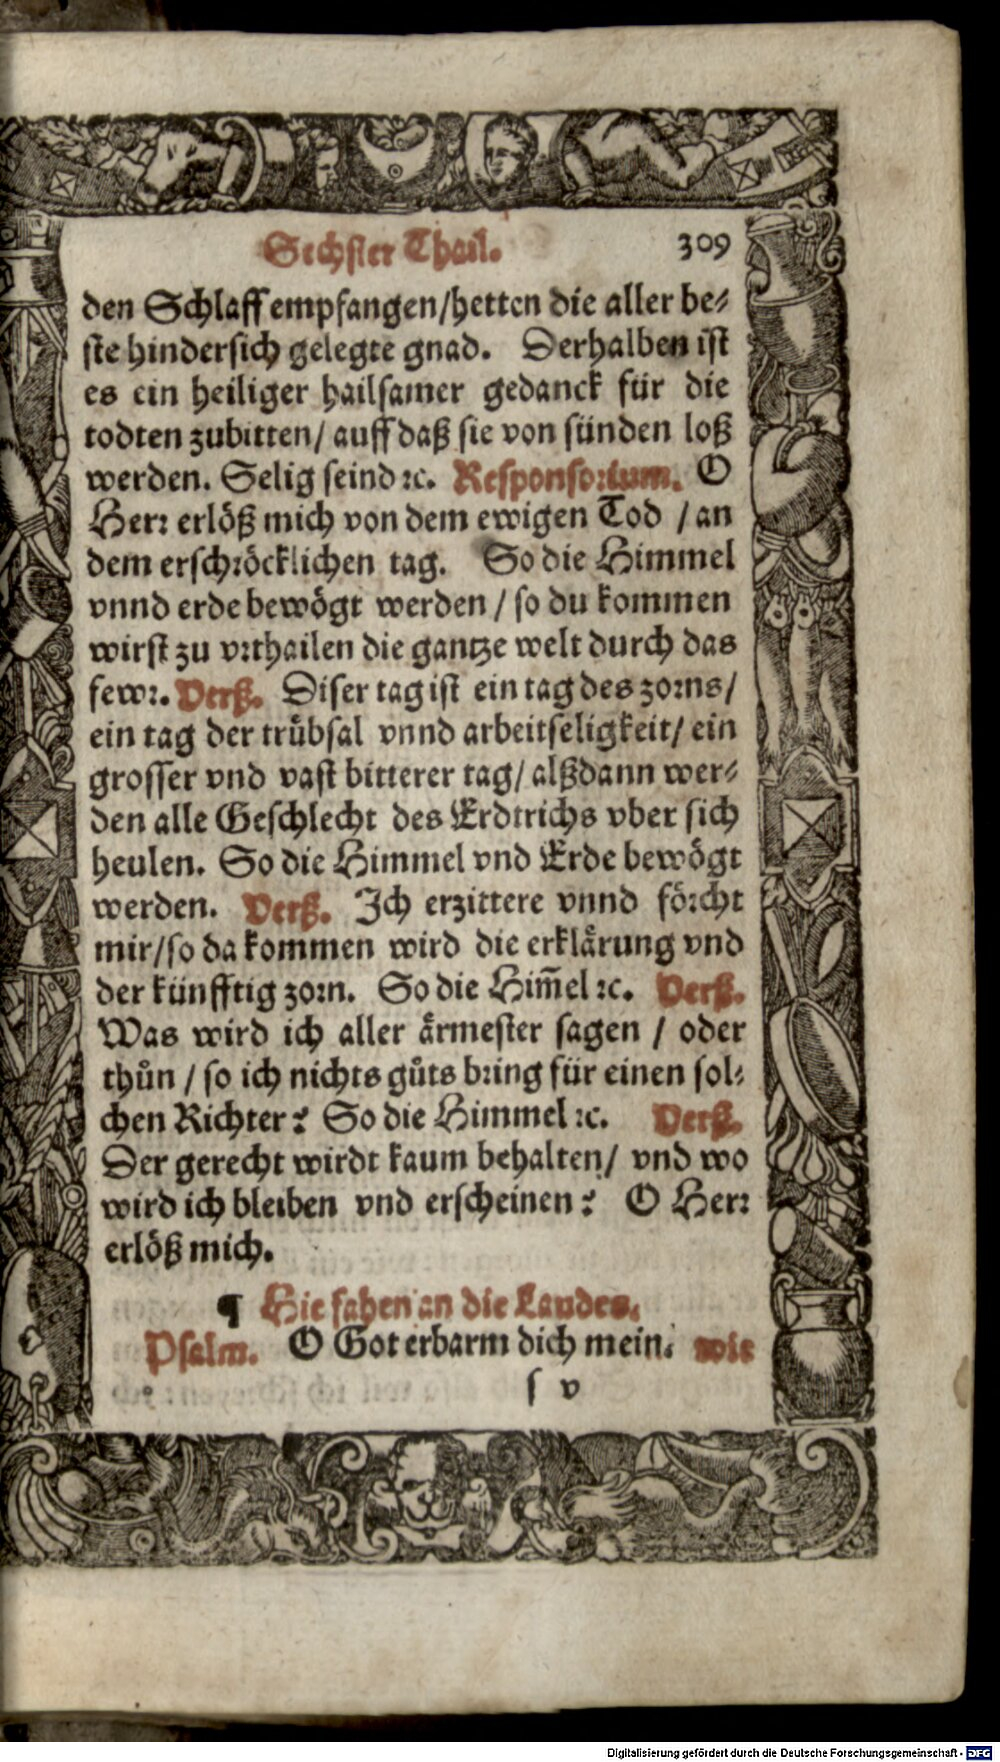 Sechster Thail. 309
den Schlaff empfangen/hetten die aller be⸗
ste hindersich gelegte gnad. Derhalben ist
es ein heiliger hailsamer gedanck für die
todten zubitten/ auff daß sie von sünden loß
werden. Selig seind ꝛc. Responsorium. O
Herr erlöß mich von dem ewigen Tod / an
dem erschröcklichen tag. So die Himmel
vnnd erde bewögt werden / so du kommen
wirst zu vrthailen die gantze welt durch das
fewr. Verß. Diser tag ist ein tag des zorns/
ein tag der trůbsal vnnd arbeitseligkeit/ ein
grosser vnd vast bitterer tag/ alßdann wer⸗
den alle Geschlecht des Erdtrichs vber sich
heulen. So die Himmel vnd Erde bewögt
werden. Verß. Ich erzittere vnnd förcht
mir/so da kommen wird die erklärung vnd
der künfftig zorn. So die Him̃el ꝛc. Verß.
Was wird ich aller ärmester sagen / oder
thůn / so ich nichts gůts bring für einen sol⸗
chen Richter? So die Himmel ꝛc. Verß.
Der gerecht wirdt kaum behalten/ vnd wo
wird ich bleiben vnd erscheinen? O Herr
erlöß mich.
¶ Hie fahen an die Laudes.
Psalm. O Got erbarm dich mein. wie
s v
Digitalisierung gefördert durch die Deutsche Forschungsgemeinschaft - DFG